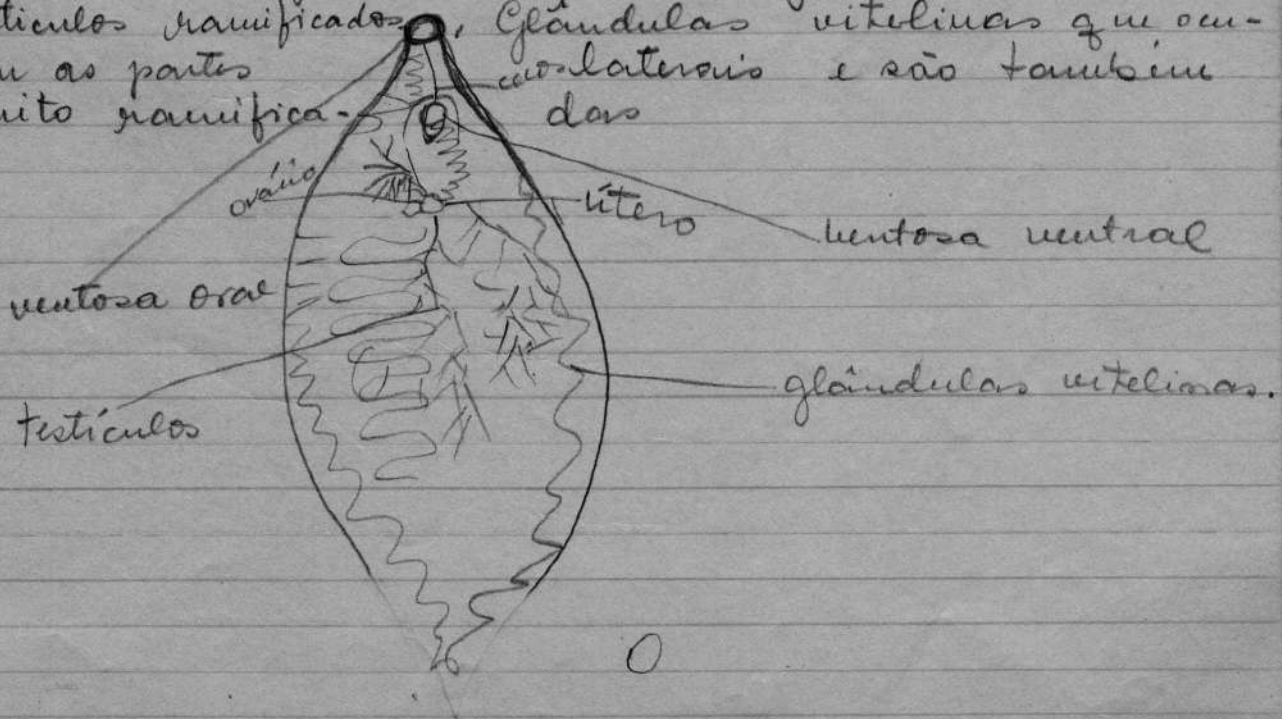 tículos ramificados, Glândulas vitelinas que ocu-
m as partes laterais e são também
uito ramifica- das
ovário
útero
ventosa ventral
ventosa oral
glândulas vitelinas.
testículos